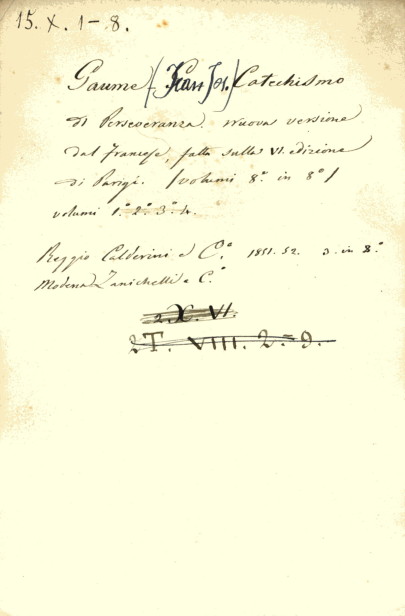 15. X. 1-8.
Gaume (Jean Jos.) Catechismo
di Perseveranza. nuova versione
dal Francese, fatta sulla VI. edizione
di Parigi. (volumi 8.° in 8°)
volumi 1.° 2.° 3.° 4.
Reggio Calderini e C.° 1851. 52. 3. in 8.°
Modena Zanichelli e C.°
2. X. VI.
2T. VIII. 2=9.